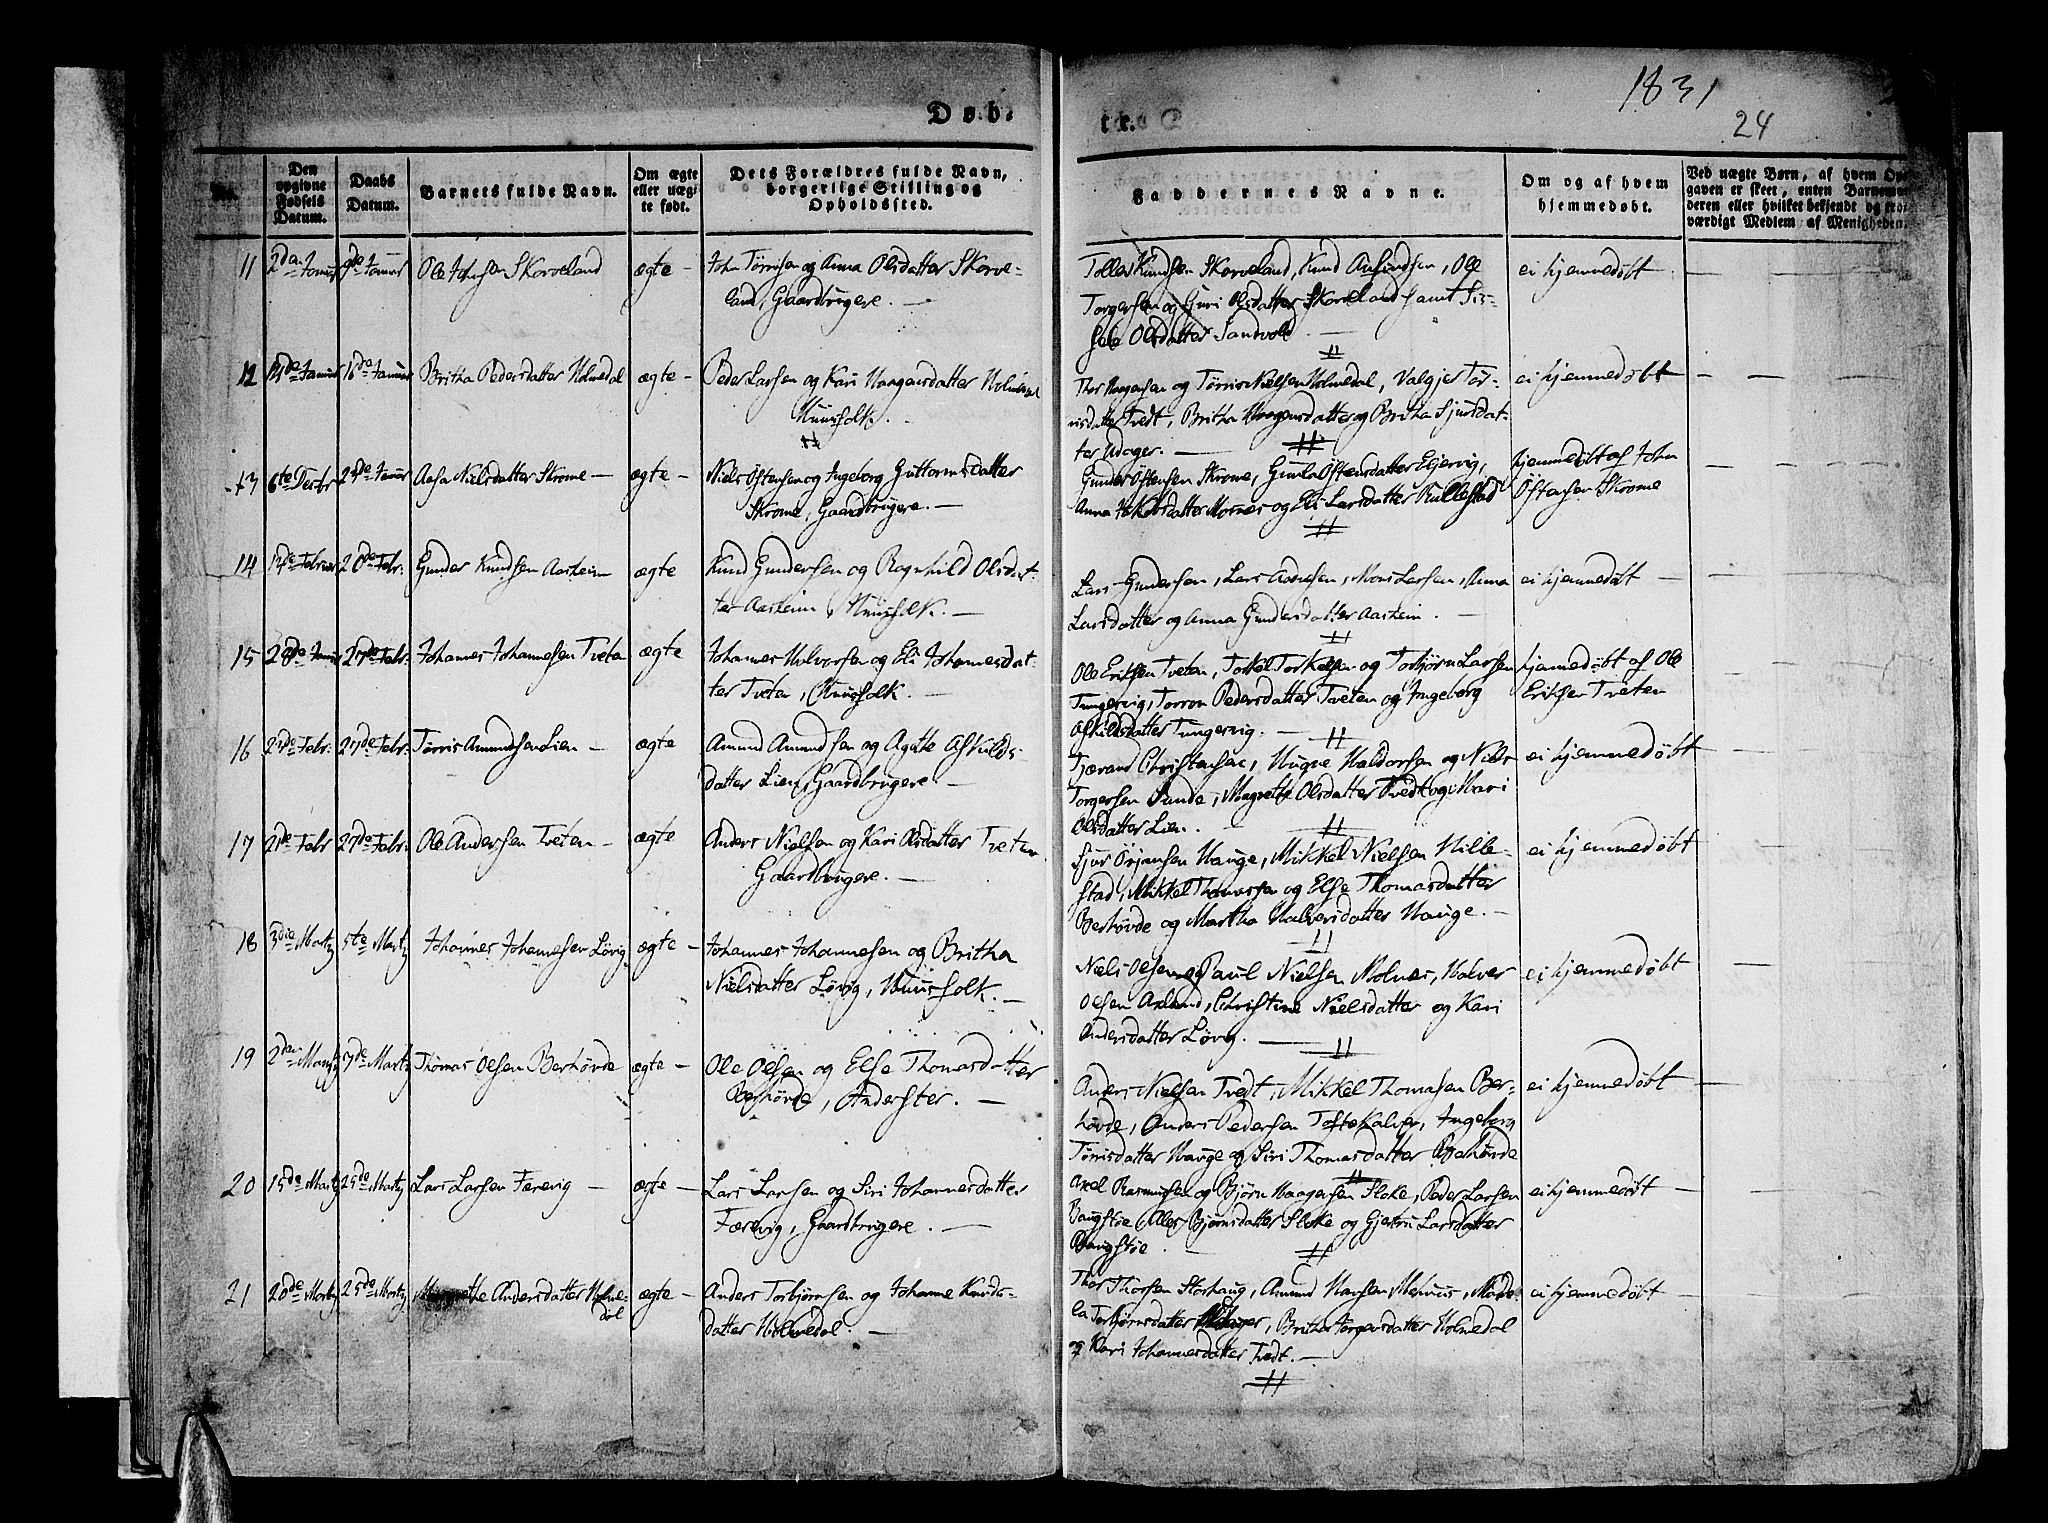 1831
24
Døb-
te.
No.
Den
opgivne
Fødsels
Datum.
Daabs
Datum.
Barnets fulde Navn.
Om ægte
eller uæg-
te født.
Dets Forældres fulde Navn,
borgerlige Stilling og
Opholdssted.
Faddernes Navne.
Om og af hvem
hjemmedøbt.
Ved uægte Børn, af hvem Op-
gaven er skeet, enten Barnemo-
deren eller hvilket bekjendt og tro-
værdigt Medlem af Menigheden.
11 2den Januar 9de Januar Ole Johnsen Skorveland ægte – John Törrisen og Anna Olsdatter Skorve-
land, Gaardbrugere. —
Knudsen Skorveland, Knud Amundsen, Ole
Torgersen og Guri Olsdatter Skorveland samt Sis-
sele Olsdatter Sandvold —
ei hjemmedøbt
12 16de Januar Britha Pedersdatter Holmedal ægte – Peder Larsen og Kari Haagensdatter Holmedal
Huusfolk.
Thor Haagensen og Törris Nielsen Holmedal, Valgjer Tör-
risdatter Tvedt, Britha Haagensdatter og Britha Sjursdat-
ter Udager. —
ei hjemmedøbt
13 6te Decbr 23de Januar Aasa Nielsdatter Skrome — ægte – Niels Östensen og Ingeborg Guttormsdatter
Skrome, Gaardbrugere. —
Gunder Östensen Skrome, Gunla Östensdatter
Anna Jakobsdatter og Eli Larsdatter Rullestad
hjemmedøbt af John
Östensen Skrome
14 20de Febr: Gunder Knudsen Aasheim ægte Knud Gundersen og Ragnhild Olsdat-
ter Aasheim, Huusfolk. —
Lars Gundersen, Lars Larsen, Anna
Larsdatter og Anna Gundersdatter Aasheim.
ei hjemmedøbt —
15 27de Febr: Johannes Johannesen Tveten ægte Johannes Halvorsen og Eli Johannesdat-
ter Tveten, Huusfolk. —
Ole Eriksen Tveten, Torkel Torkelsen og Torbjörn Larsen
Tungesvig, Pedersdatter Tveten og Ingeborg
Askildsdatter Tungesvig. —
hjemmedøbt af Ole
Eriksen Tveten
16 27de Febr: Törris Amundsen Lien — ægte Amund Amundsen og Agathe Askilds-
datter Lien, Gaardbrugere —
Tjærand Christensen, Haldorsen og Niels
Torgersen Sunde, Magrethe Olsdatter Tvedt og Kari
Olsdatter Lien.
ei hjemmedøbt
17 21de Febr 27de Febr: Ole Andersen Tveten — ægte Anders Nielsen og Kari Olsdatter Tveten
Gaardbrugere. —
Sjur Örjansen Hauge, Mikkel Nielsen Hille-
stad, Mikkel Thomassen og Else Thomasdatter
Berhövde og Martha Halvorsdatter Hauge. —
ei hjemmedøbt
18 3die Martz 5te Martz Johannes Johannesen Lövig ægte – Johannes Johannesen og Britha
Nielsdatter Lövig, Huusfolk. —
Niels Olsen og Paul Nielsen Molnes, Halvor
Olsen Axland, Christine Nielsdatter og Kari
Andersdatter Lövig. —
ei hjemmedøbt
19 2den Martz 7de Martz Thomas Olsen Berhövde ægte – Ole Olsen og Else Thomasdatter
Berhövde, Inderster. —
Anders Nielsen Tvedt, Mikkel Thomasen Ber-
hövde, Anders Pedersen Toftekalven, Ingeborg
Törrisdatter Hauge og Siri Thomasdatter Berhövde
ei hjemmedøbt
20 15de Martz 25de Martz Lars Larsen Færevig — ægte – Lars Larsen og Siri Johannesdatter
Færevig, Gaardbrugere. —
Axel Rasmusen og Björn Haagensen Stoke, Peder Larsen
Baugstöe, Björnsdatter Stoke og Gjertru Larsdatter
Baugstöe
ei hjemmedøbt —
21 20de Martz 25de Martz Andersdatter Holme-
dal ægte – Anders Torbjörnsen og Johanne Knuds-
datter Holmedal. —
Thor Thorsen Storhaug, Amund Hansen
Torbjörnsdatter Britha Torgersdatter Holmedal
og Kari Johannesdatter Tvedt. —
ei hjemmedøbt —